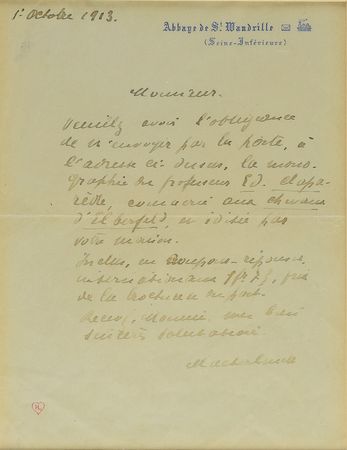 1er Octobre 1913.
Abbaye de St Wandrille
(Seine-Inférieure)
Monsieur.
Veuillez avoir l'obligeance
de m'envoyer par la poste, à
l'adresse ci-dessus, la mono-
graphie du professeur Ed. Clapa-
rède, consacrée aux chevaux
d'Elberfeld, et éditée par
votre maison.
Inclus, un coupon-réponse
international
de la brochure
Recevez, Monsieur, mes bien
sincères salutations.
Maeterlinck